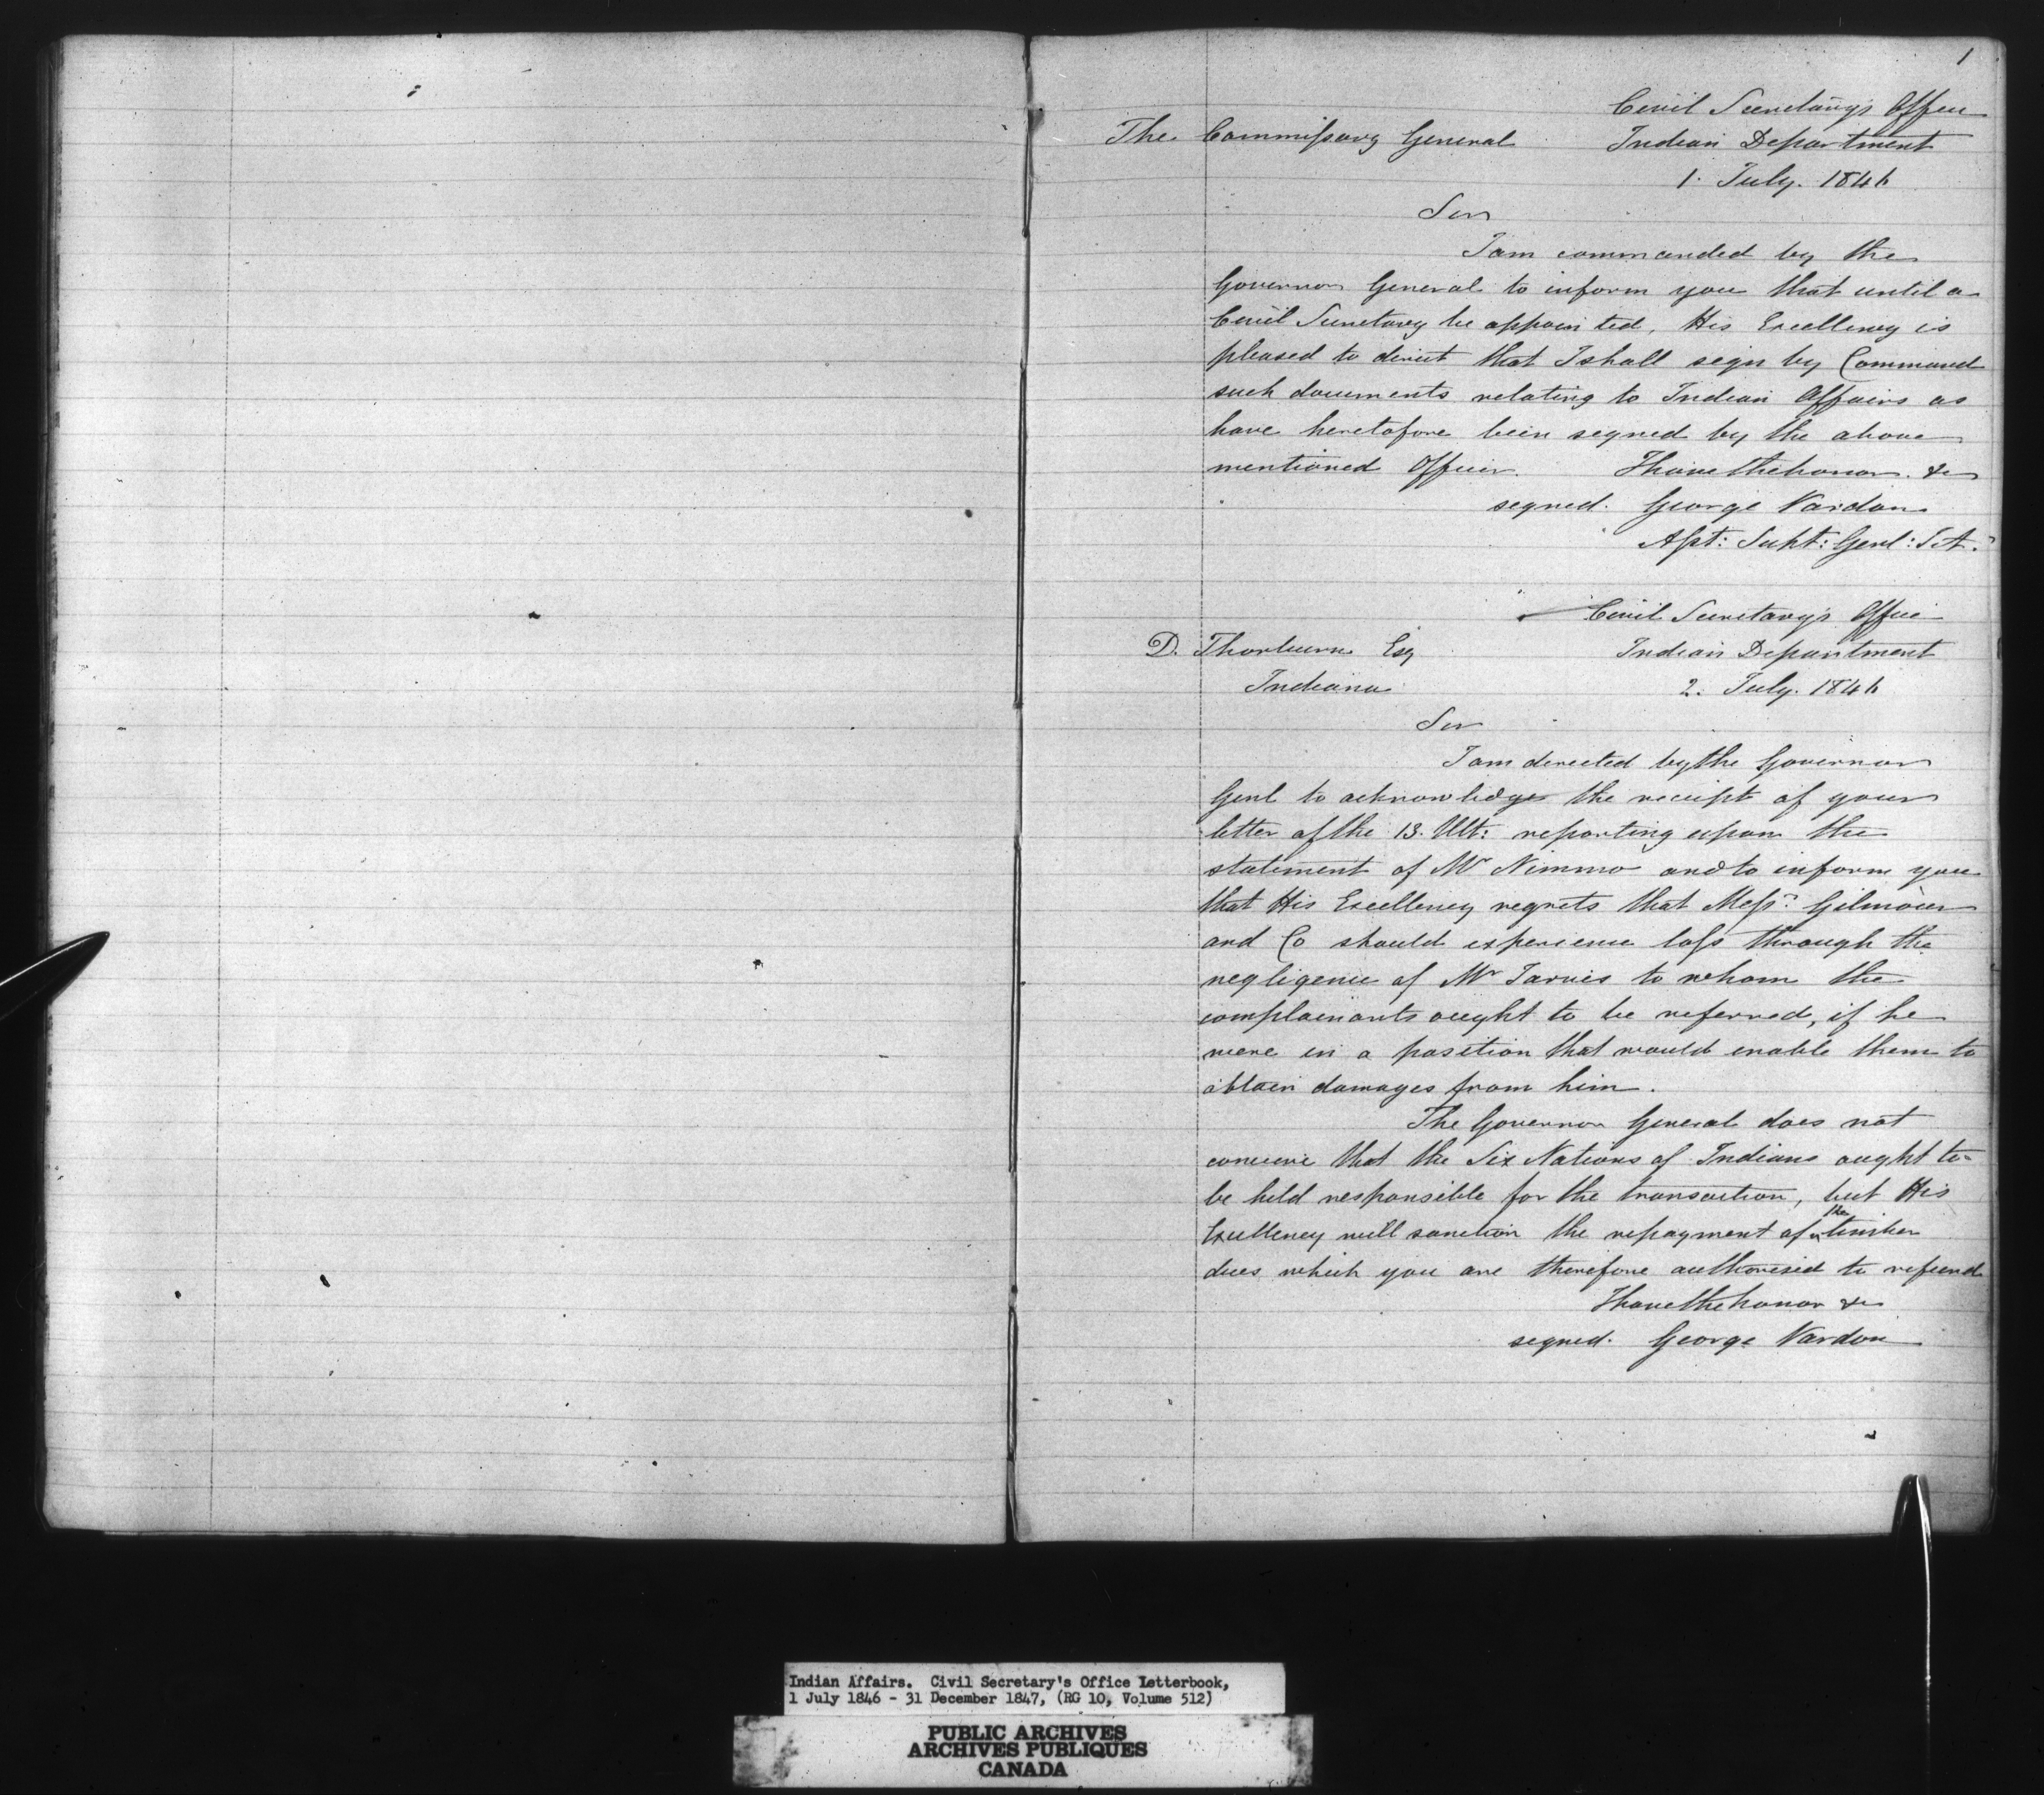 1
Civil Secretary's Office
The Commissary General
Indian Department
1. July. 1846
Sir
I am commanded by the
Governor General to inform you that until a
Civil Secretary be appointed, His Excellency is
pleased to direct that I shall sign by Command
such documents relating to Indian Affairs as
have heretofore been signed by the above
mentioned Officer. I have the honor &c
signed. George Vardon
Asst: Supt: Genl:
Civil Secretary's Office
D. Thorburn Esq
Indian Department
Indiana
2. July. 1846
Sir
I am directed by the Governor
Genl to acknowledge the receipt of your
letter of the 13. Ult: reporting upon the
statement of Mr Nimmo and to inform you
that His Excellency regrets that Messrs Gilmour
and Co should experience loss through the
negligence of Mr Jarvis to whom the
complainants ought to be referred, if he
were in a position that would enable them to
obtain damages from him.
The Governor General does not
conceive that the Six Nations of Indians ought to
be held responsible for the transaction, but His
Excellency will sanction the repayment of the timber
dues which you are therefore authorised to refund
I have the honor &c
signed. George Vardon
Indian Affairs. Civil Secretary's Office Letterbook,
1 July 1846 - 31 December 1847, (RG 10, Volume 512)
PUBLIC ARCHIVES
ARCHIVES PUBLIQUES
CANADA